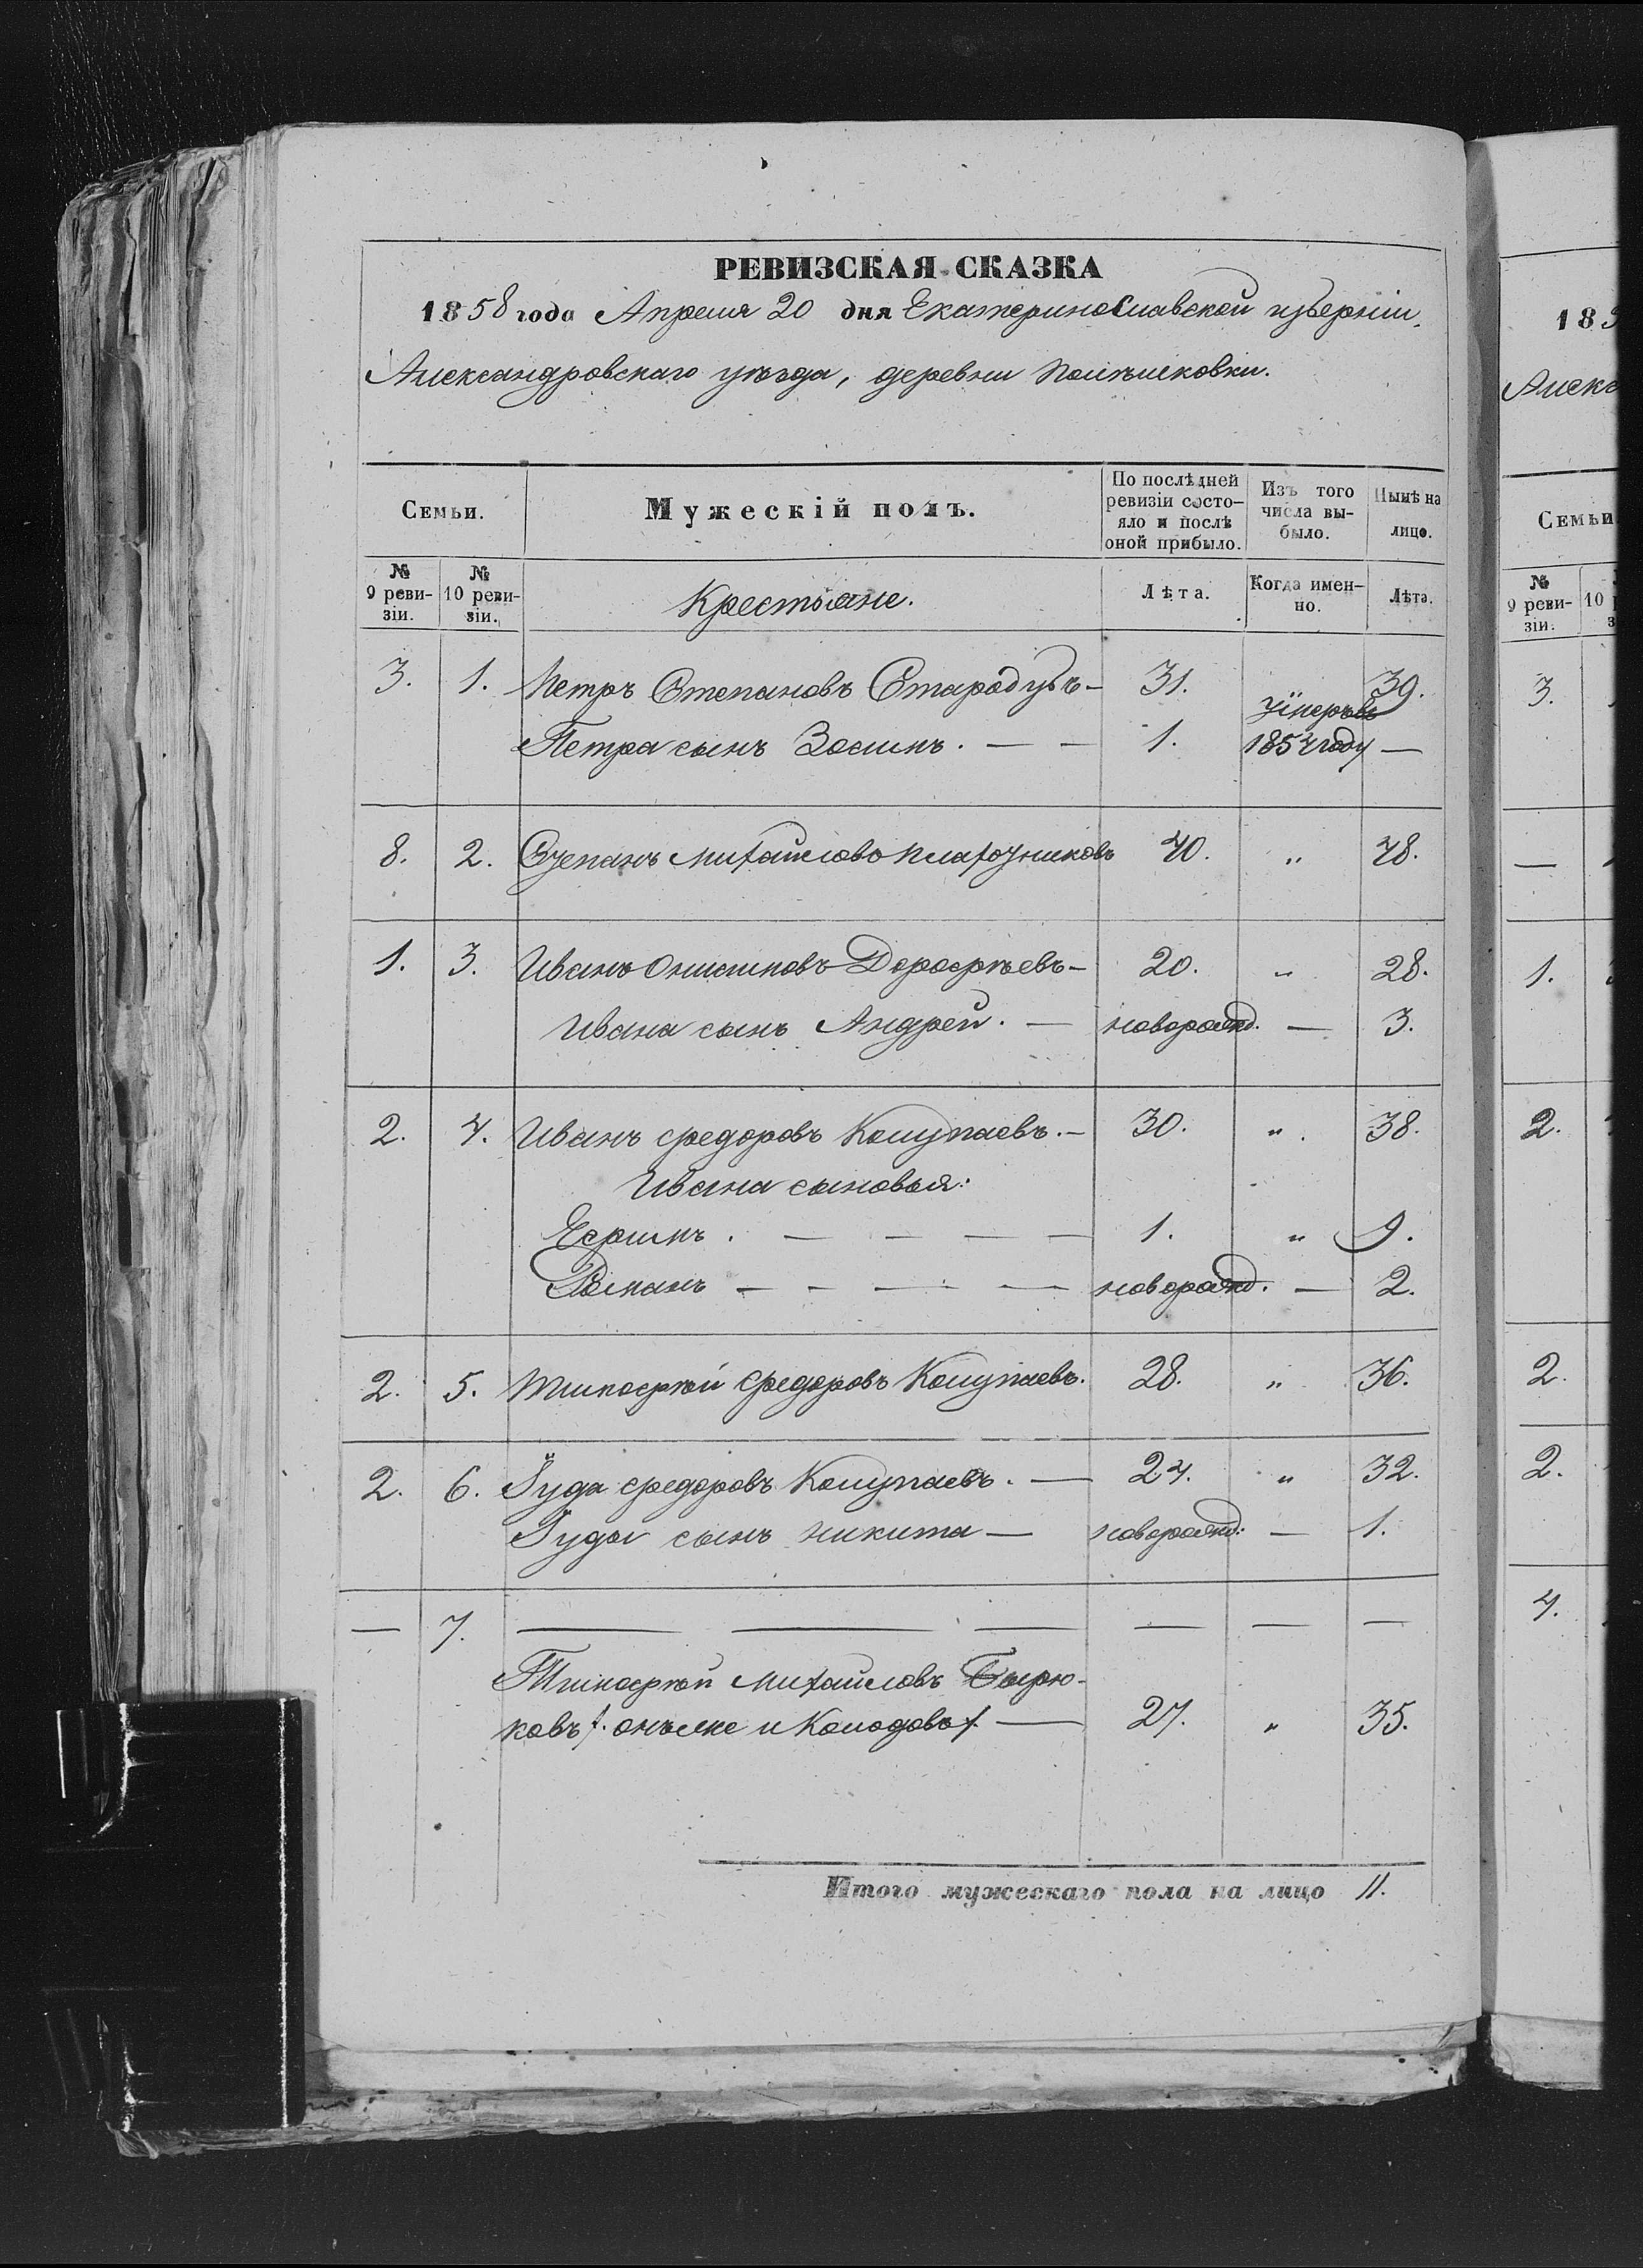 РЕВИЗСКАЯ СКАЗКА
1858 года Апреля 20 дня Екатеринославской губерніи,
Александровскаго уѣзда, деревни
Семьи.
Мужескій полъ.
По послѣдней ревизіи состо-
яло и послѣ оной прибыло.
Изъ того числа вы-
было.
Нынѣ на лицо.
№ 9 реви-
зіи.
№ 10 реви-
зіи.
Крестьяне.
Лѣта.
Когда имен-
но.
Лѣта.
3. 1. Петръ Степановъ Стародубъ — 31. 39.
Петра сынъ Зосимъ. — — 1. умеръ въ 1854 году —
8. 2. Степанъ Михайловъ 40. " 48.
1. 3. Иванъ Онисимовъ Дорофѣевъ — 20. " 28.
Ивана сынъ Андрей. — новорожд. — 3.
2. 4. Иванъ Федоровъ Колупаевъ. — 30. " 38.
Ивана сыновья:
Ефимъ. — — — — 1. " 9.
Романъ — — — — новорожд. — 2.
2. 5. Тимофѣй Федоровъ Колупаевъ. 28. " 36.
2. 6. Іуда Федоровъ Колупаевъ. — 24. " 32.
Іуды сынъ Никита — новорожд: — 1.
— 7. — — — — — —
Тимофѣй Михайловъ Бырю-
ковъ /: онъ же и Колодовъ :/ — 27. " 35.
Итого мужескаго пола на лицо 11.
183
Алекс
Семьи
№ 9 реви-
зіи.
10
3.
—
1.
2.
2.
2.
4.